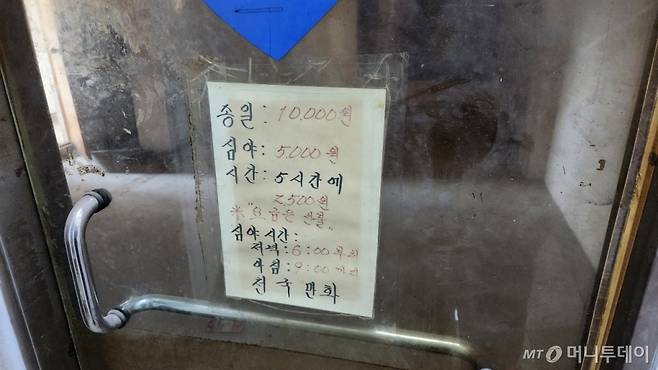 종일: 10.000원
심야: 5.000원
시간: 5시간에
2,500원
※"요금은 선불"
심야시간:
저녁:6:00부터
아침:9:00까지
전국만화
MT 머니투데이